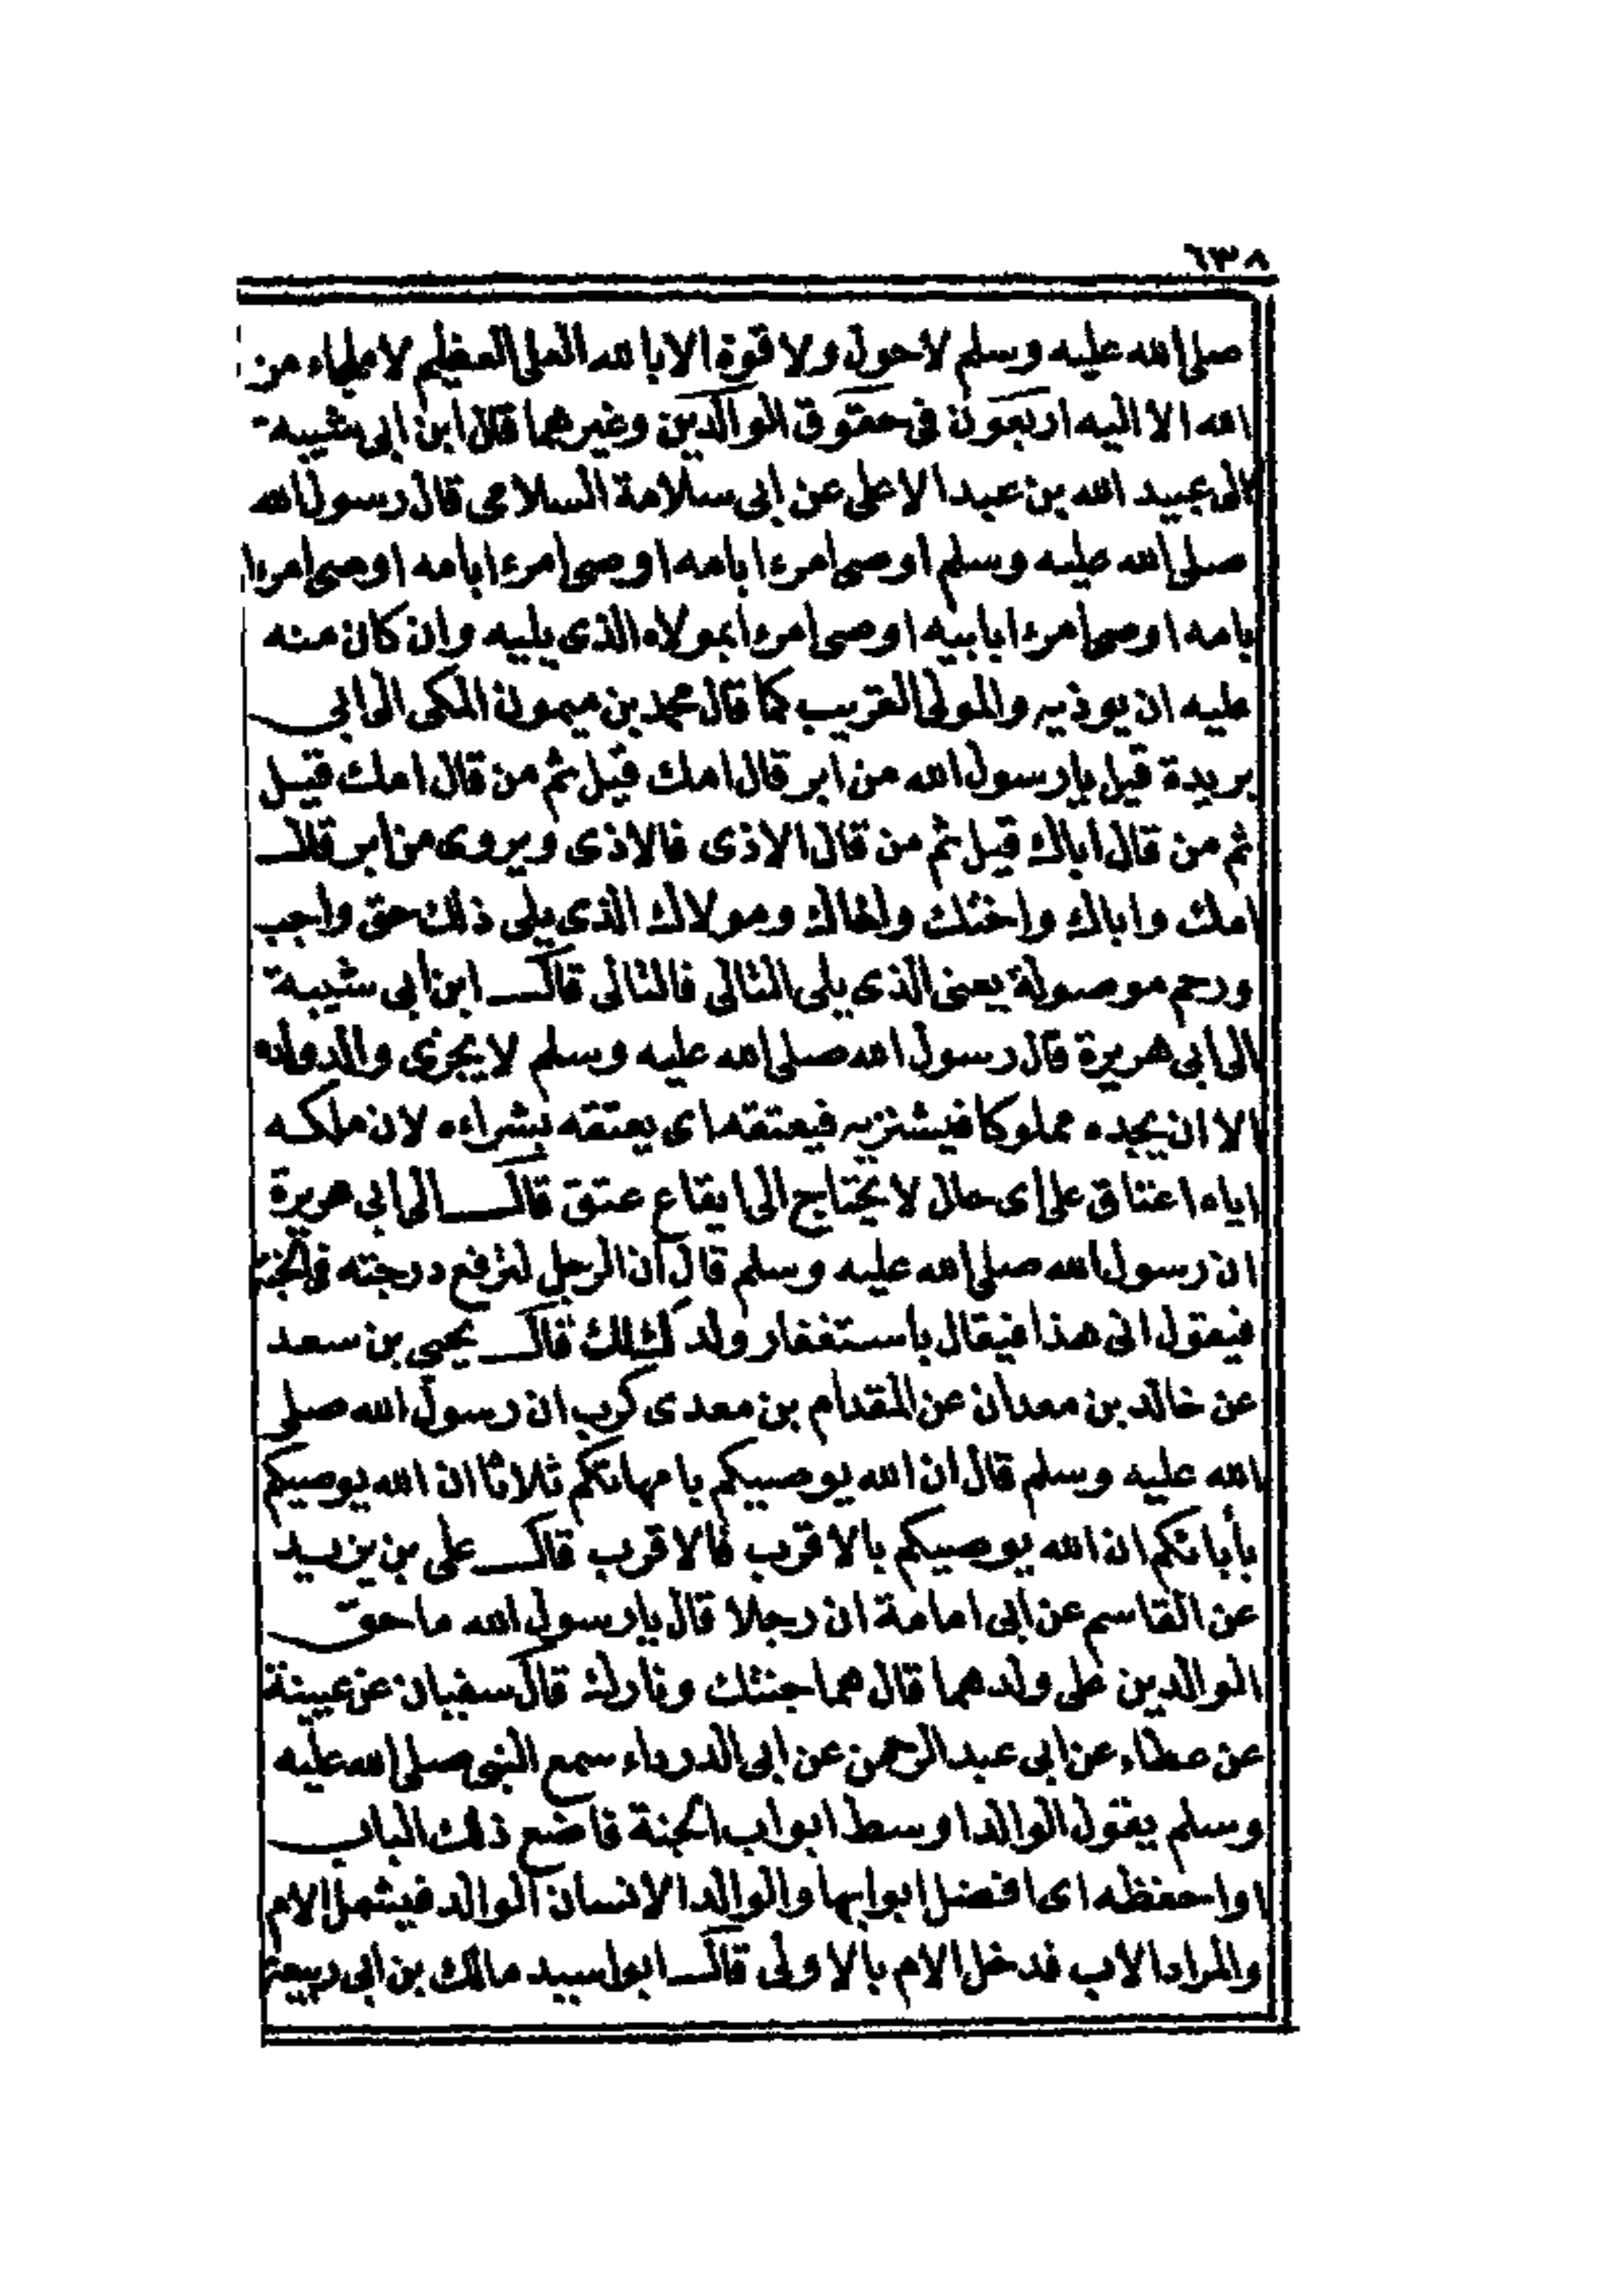 ٦٣٨
صلى الله عليه وسلم لاحول ولا قوة الا بالله العلى العظيم لا ملجاء من
الله الا اليه اربعون فى حقوق الوالدين وغيرهما قال ابن ابى شيبة
الى عبيد الله بن عبد الاعلى عن ابى سلامة السلامى قال رسول الله
صلى الله عليه وسلم اوصى امرءا بامه اوصى امرءا بامه اوصى امرءا
بامه اوصى امرءا بابيه اوصى امرءا بمولاه الذى يليه وان كان منه
عليه ان يوذيه والمولى القريب كما قال محمد بن ميمون المكى الى ابى
بريدة قيل يا رسول الله من ابر قال امك قيل ثم من قال امك قيل
ثم من قال اباك قيل ثم من قال الاذى فالاذى ويروى من ابر قال
امك واباك واختك واخاك ومولاك الذى يلى ذلك حق واجب
ورحم موصولة يعنى الذى يلى التالى فالتالى قال ابن ابى شيبة
الى ابى هريرة قال رسول الله صلى الله عليه وسلم لا يجزى والد ولده
الا ان يجده مملوكا فيشتريه فيعتقه اى يعتقه بشراءه لان ملكه
اياه اعتاق على اى حال لا يحتاج الى ايقاع عتق قال الى ابى هريرة
ان رسول الله صلى الله عليه وسلم قال ان الرجل لترفع درجته فى الجنة
فيقول انى هذا فيقال باستغفار ولدك لك قال يحيى بن سعد
عن خالد بن معدان عن المقدام بن معدى كرب ان رسول الله صلى
الله عليه وسلم قال ان الله يوصيكم بامهاتكم ثلاثا ان الله يوصيكم
بأبائكم ان الله يوصيكم بالاقرب فالاقرب قال على بن يزيد
عن القاسم عن ابى امامة ان رجلا قال يا رسول الله ما حق
الوالدين على ولدهما قال هما جنتك ونارك قال سفيان عن عيينة
عن عطاء عن ابى عبد الرحمن عن ابى الدرداء سمع النبى صلى الله عليه
وسلم يقول الوالد اوسط ابواب الجنة فاضع ذلك الباب
او احفظه اى افضل ابوابها والوالد الانسان الوالد فيشمل الام
والمراد الاب فدخل الام بالاولى قال ابو اسيد مالك بن ابى ربيعة